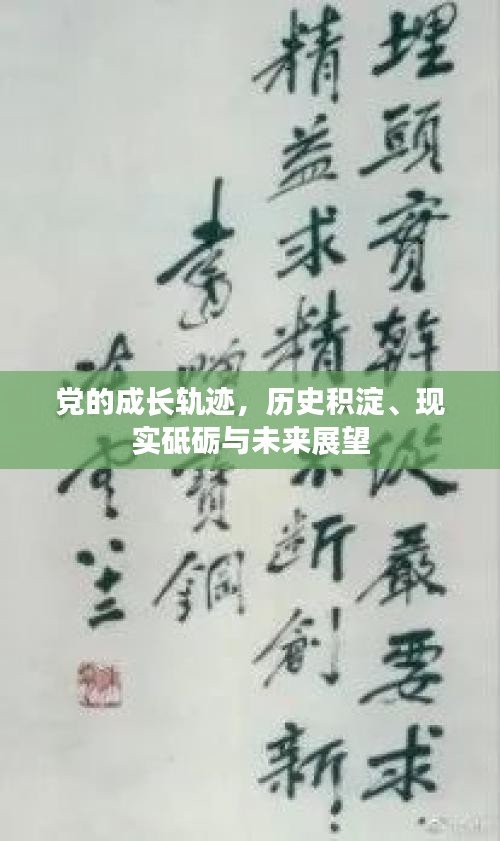 埋頭實幹從嚴要求
精益求精不断創新!
書贈寶鋼
陈雲八十二
党的成长轨迹，历史积淀、现
实砥砺与未来展望